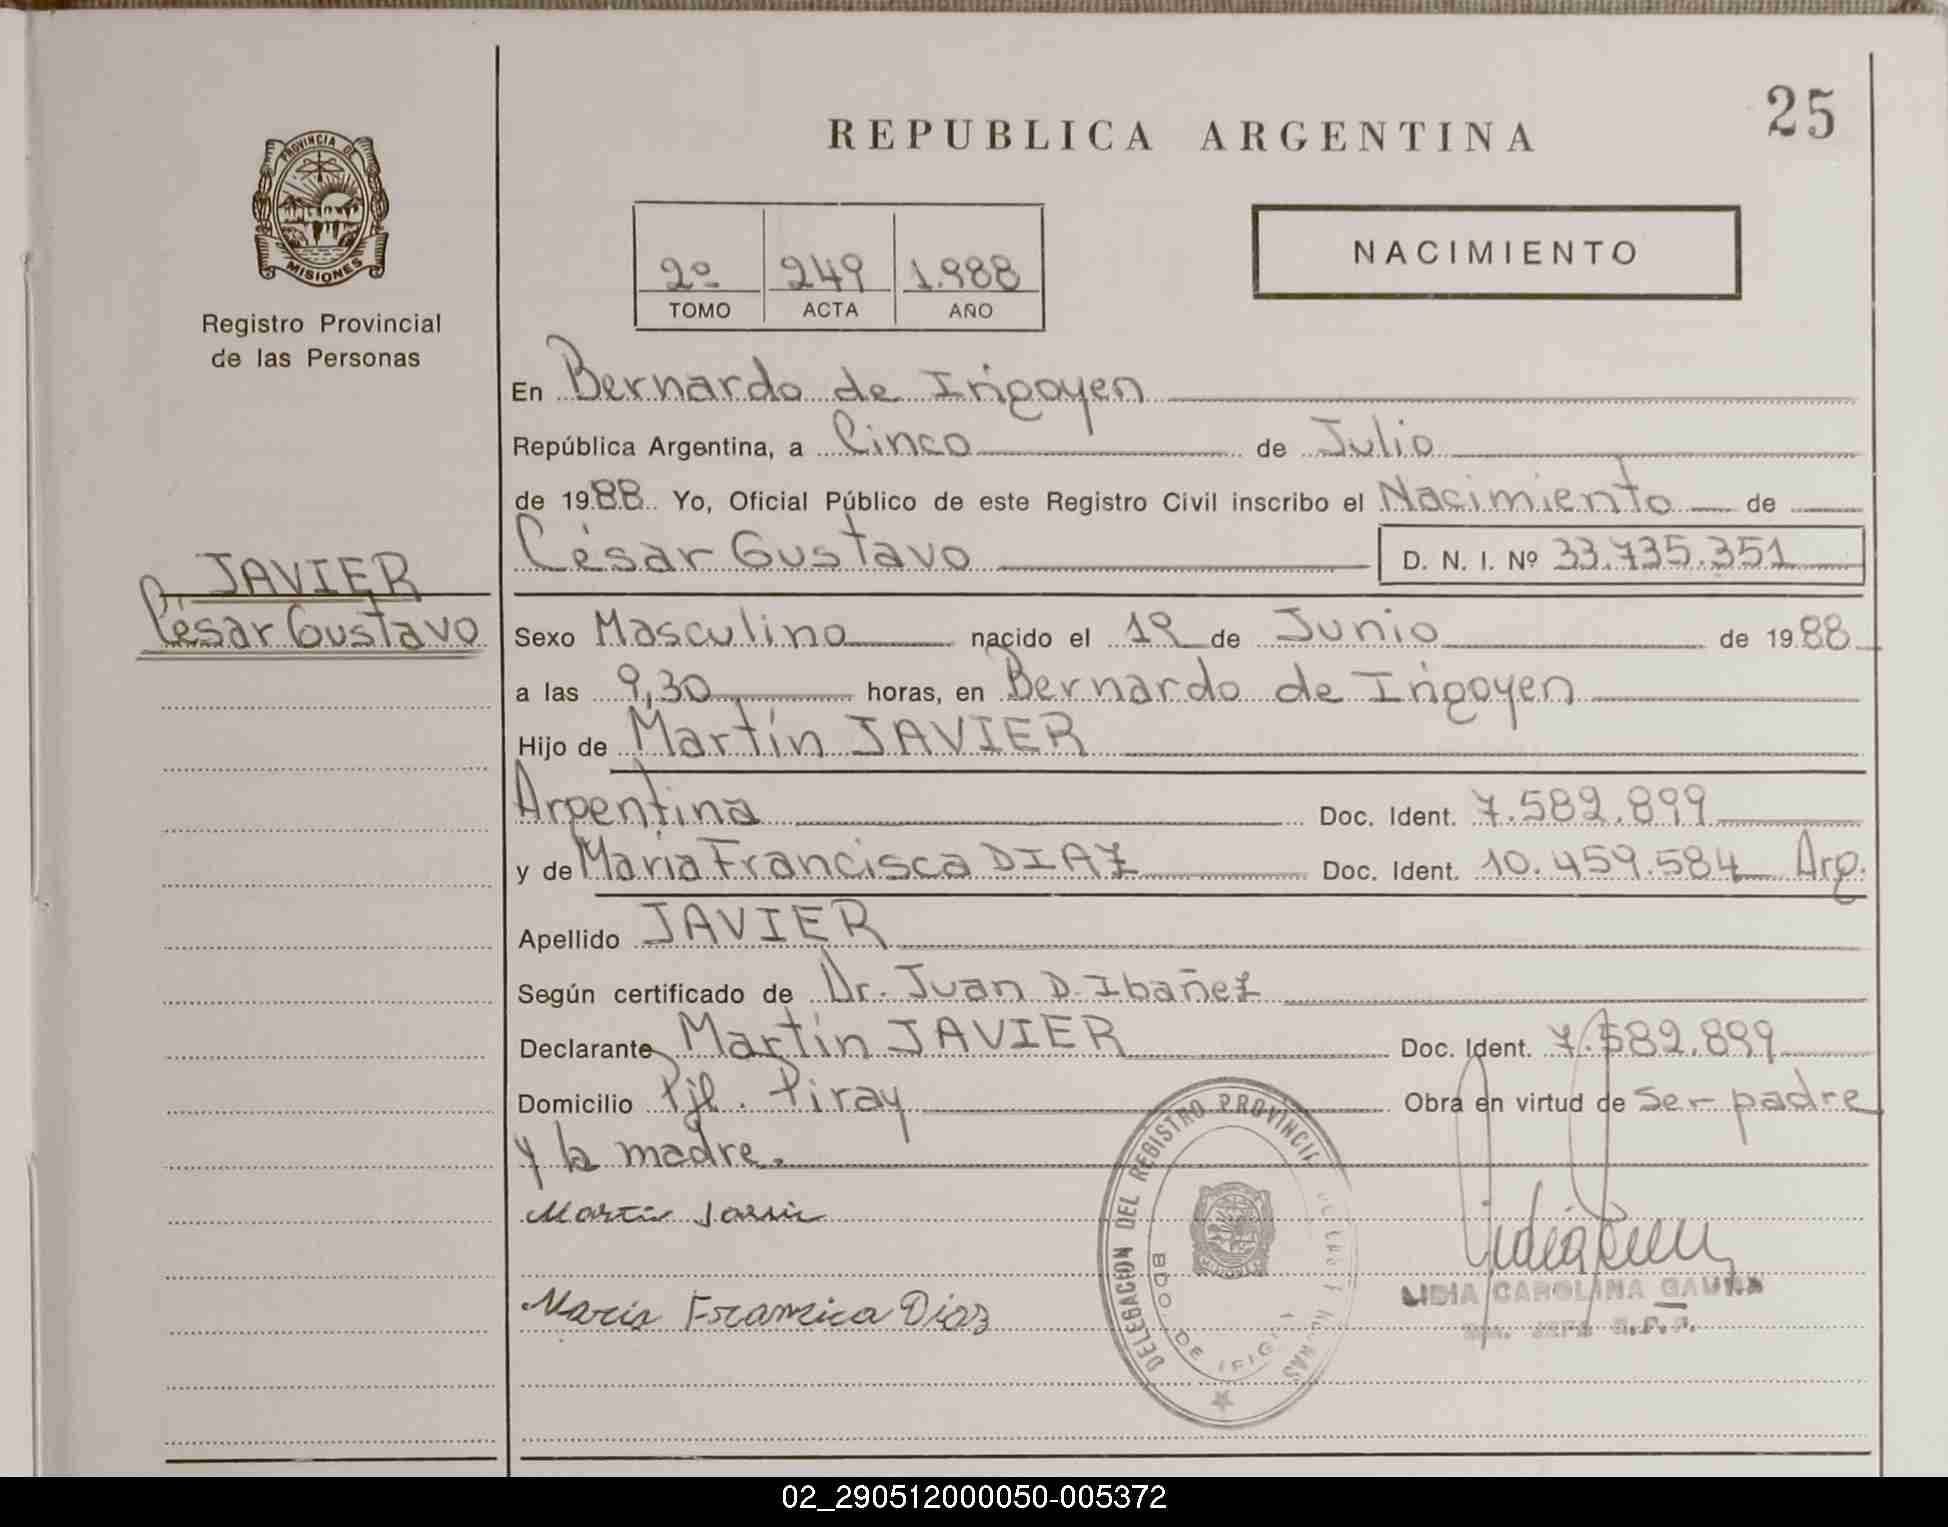 25
REPUBLICA ARGENTINA
PROVINCIA DE
MISIONES
Registro Provincial
de las Personas
2º 249 1.988
TOMO ACTA AÑO
NACIMIENTO
En Bernardo de Irigoyen
República Argentina, a Cinco de Julio
de 1988 Yo, Oficial Público de este Registro Civil inscribo el Nacimiento de
César Gustavo D. N. I. Nº 33.735.351
JAVIER
César Gustavo
Sexo Masculino nacido el 19 de Junio de 1988
a las 9,30 horas, en Bernardo de Irigoyen
Hijo de Martín JAVIER
Argentina Doc. Ident. 7.582.899
y de María Francisca DIAZ Doc. Ident. 10.459.584 Arg.
Apellido JAVIER
Según certificado de Dr. Juan D. Ibañez
Declarante Martín JAVIER Doc. Ident. 7.582.899
Domicilio Pje. Piray Obra en virtud de ser padre
y la madre.
Martin Javier
Maria Francica Diaz
DELEGACION DEL REGISTRO PROVINCIAL
BDO. DE IRIG
LIDIA CAROLINA GAUNA